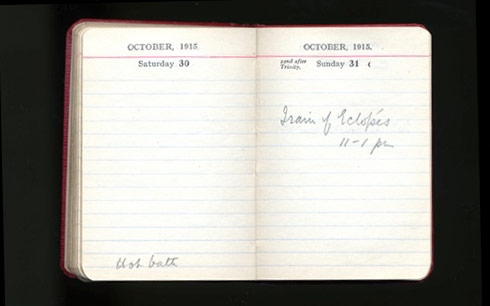 OCTOBER, 1915.
Saturday 30
Hot bath
OCTOBER, 1915.
22nd after
Trinity.
Sunday 31
Train of Eclopés
11-1 pm